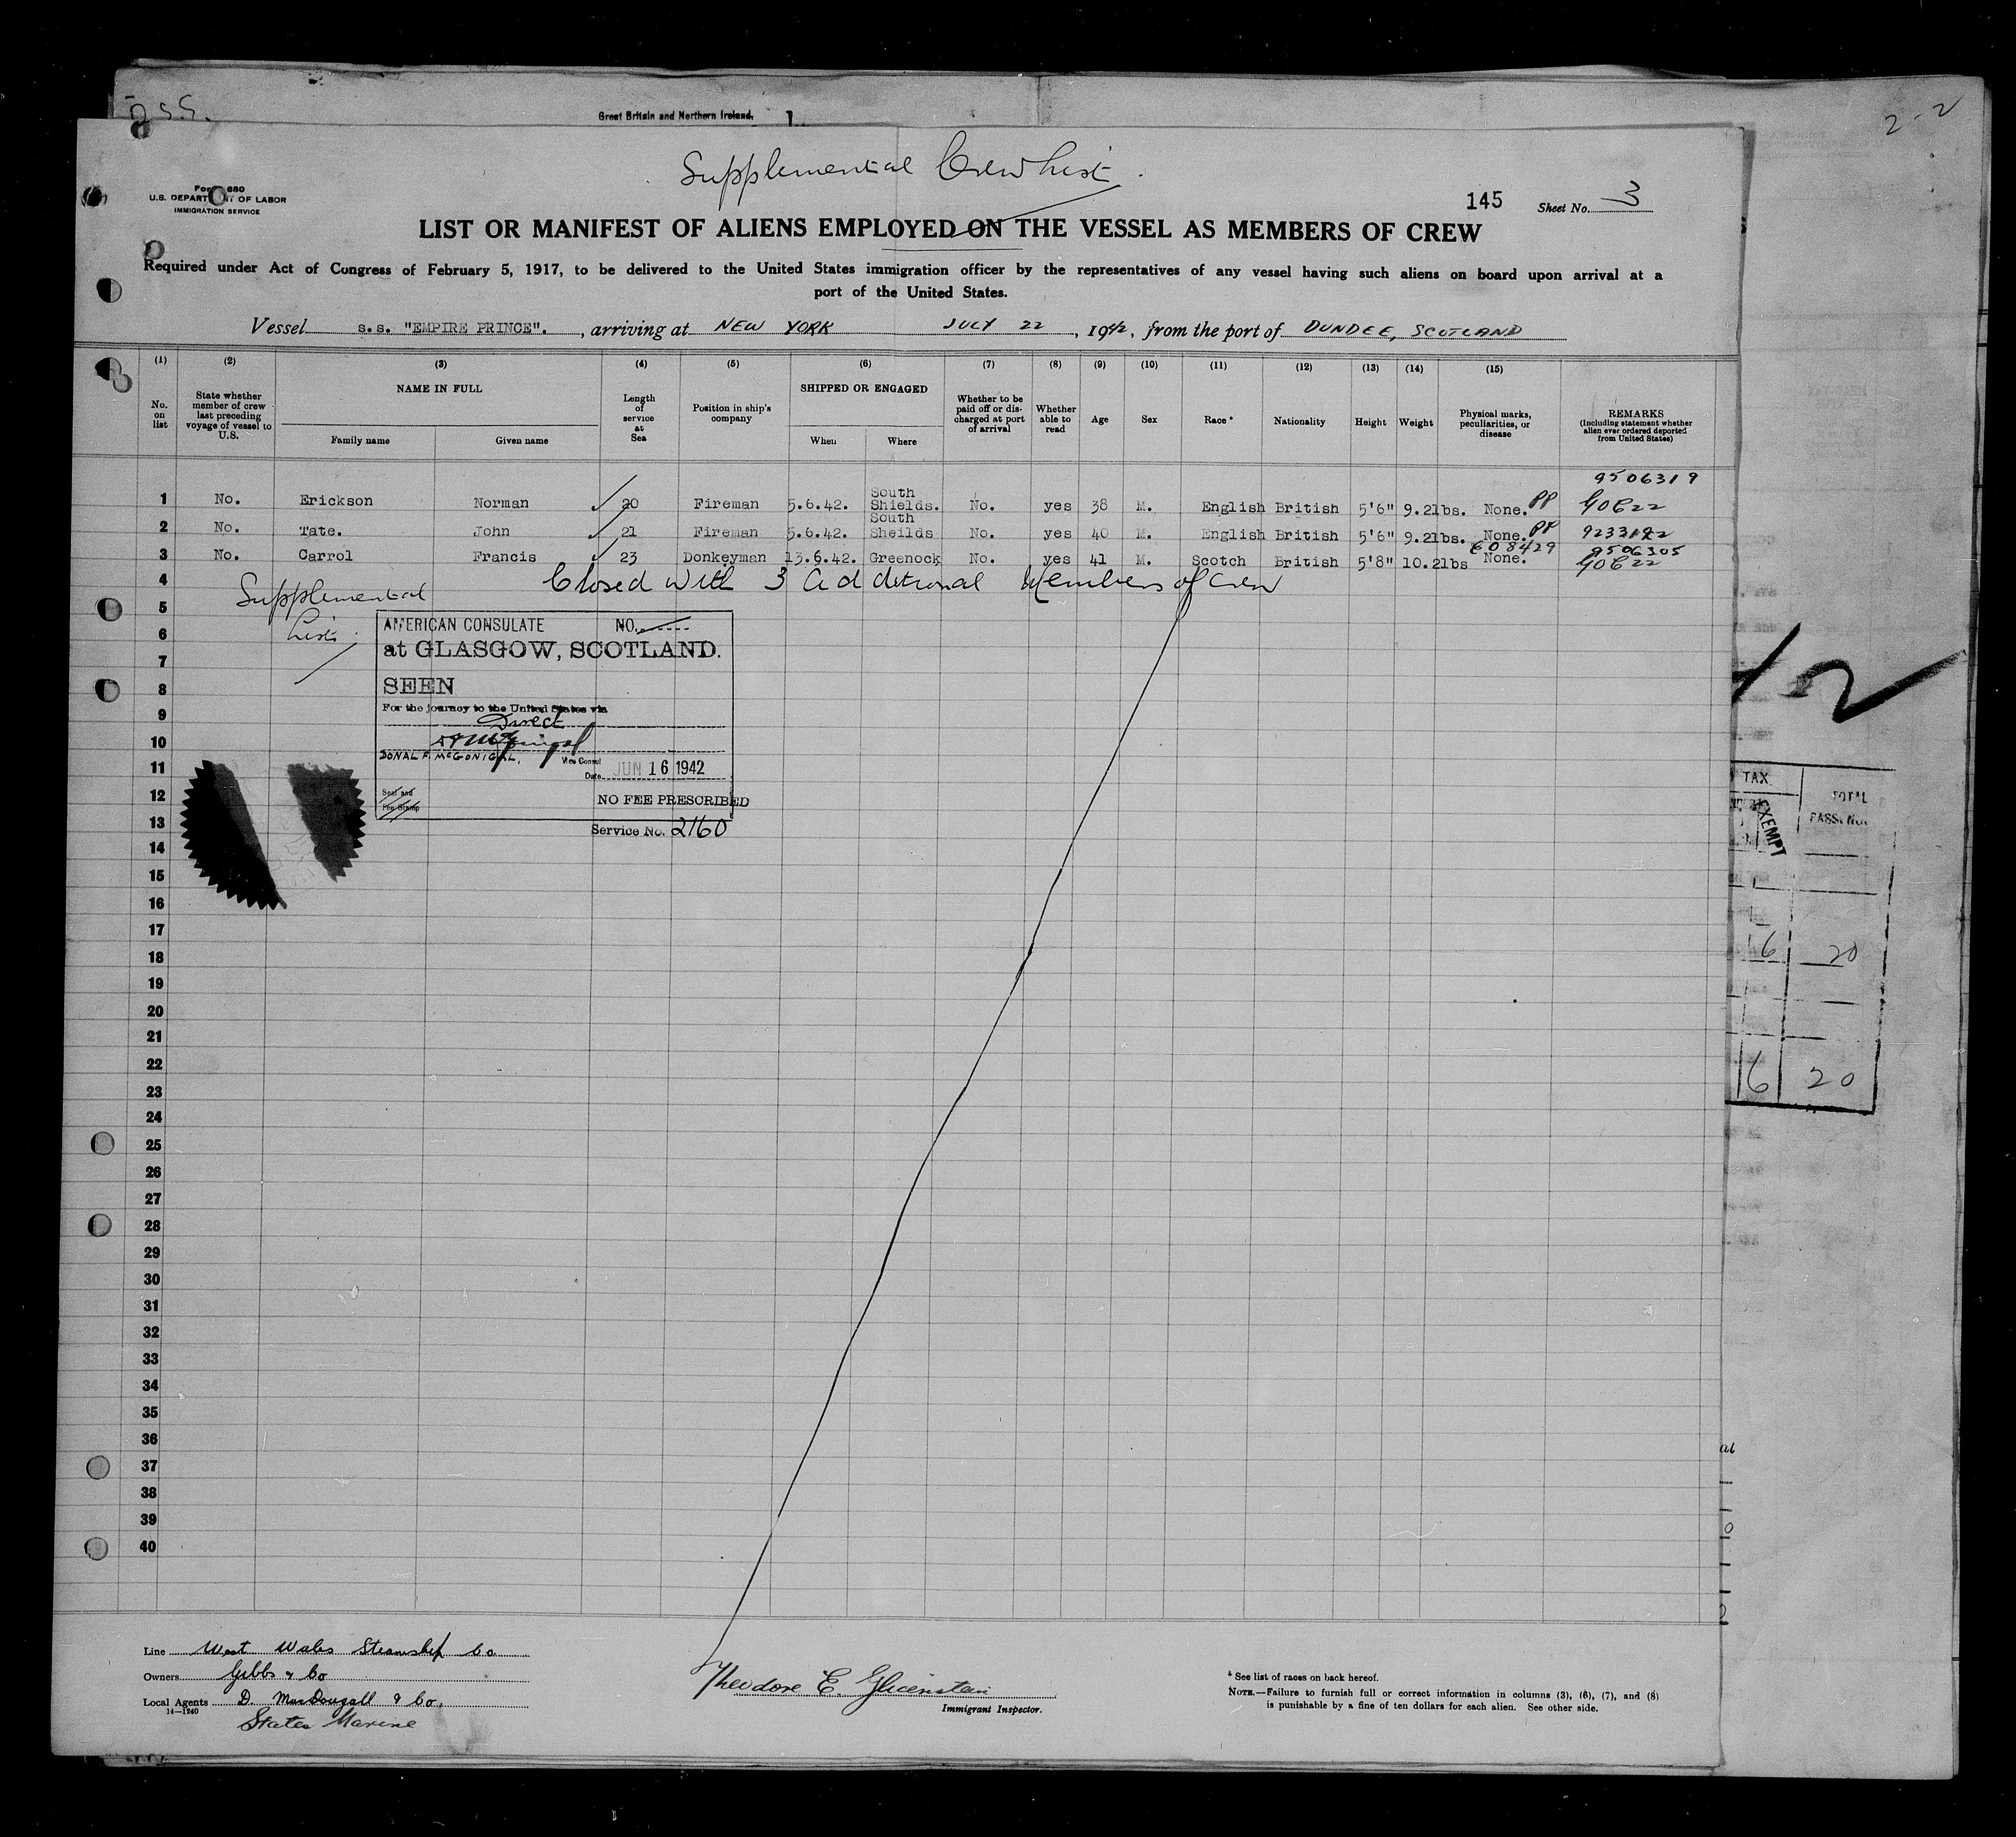 Great Britain and Northern Ireland,
2-2
Supplemental Crew List.
U.S. DEPARTMENT OF LABOR
IMMIGRATION SERVICE
145 Sheet No. 3
LIST OR MANIFEST OF ALIENS EMPLOYED ON THE VESSEL AS MEMBERS OF CREW
Required under Act of Congress of February 5, 1917, to be delivered to the United States immigration officer by the representatives of any vessel having such aliens on board upon arrival at a
port of the United States.
Vessel s.s. "EMPIRE PRINCE". , arriving at NEW YORK JULY 22 , 1942, from the port of DUNDEE, SCOTLAND
(1) (2) (3) (4) (5) (6) (7) (8) (9) (10) (11) (12) (13) (14) (15)
No. on list
State whether member of crew last preceding voyage of vessel to U.S.
NAME IN FULL
Family name Given name
Length of service at Sea
Position in ship's company
SHIPPED OR ENGAGED
When Where
Whether to be paid off or discharged at port of arrival
Whether able to read
Age
Sex
Race*
Nationality
Height
Weight
Physical marks, peculiarities, or disease
REMARKS
(Including statement whether alien ever ordered deported from United States)
9506319
1 No. Erickson Norman 20 Fireman 5.6.42. South Shields. No. yes 38 M. English British 5'6" 9.2lbs. None. PP
2 No. Tate. John 21 Fireman 5.6.42. South Sheilds No. yes 40 M. English British 5'6" 9.2lbs. None. PP
608429 9506305
3 No. Carrol Francis 23 Donkeyman 13.6.42. Greenock No. yes 41 M. Scotch British 5'8" 10.2lbs None.
4 Closed with 3 additional Members of Crew
Supplemental
List.
5
6
7
8
9
10
11
12
13
14
15
16
17
18
19
20
21
22
23
24
25
26
27
28
29
30
31
32
33
34
35
36
37
38
39
40
AMERICAN CONSULATE NO.
at GLASGOW, SCOTLAND.
SEEN
For the journey to the United States via
Direct
DONAL F. McGONIGAL,
Vice Consul
Date JUN 16 1942
Seal and
Fee Stamp
NO FEE PRESCRIBED
Service No. 2160
TAX
EXEMPT
TOTAL
6 20
6 20
Line West Wales Steamship Co
Owners Gibbs & Co
Local Agents D. MacDougall & Co.
14-1240
States Marine
Theodore E. Glicenstein
Immigrant Inspector.
* See list of races on back hereof.
NOTE.—Failure to furnish full or correct information in columns (3), (6), (7), and (8)
is punishable by a fine of ten dollars for each alien. See other side.